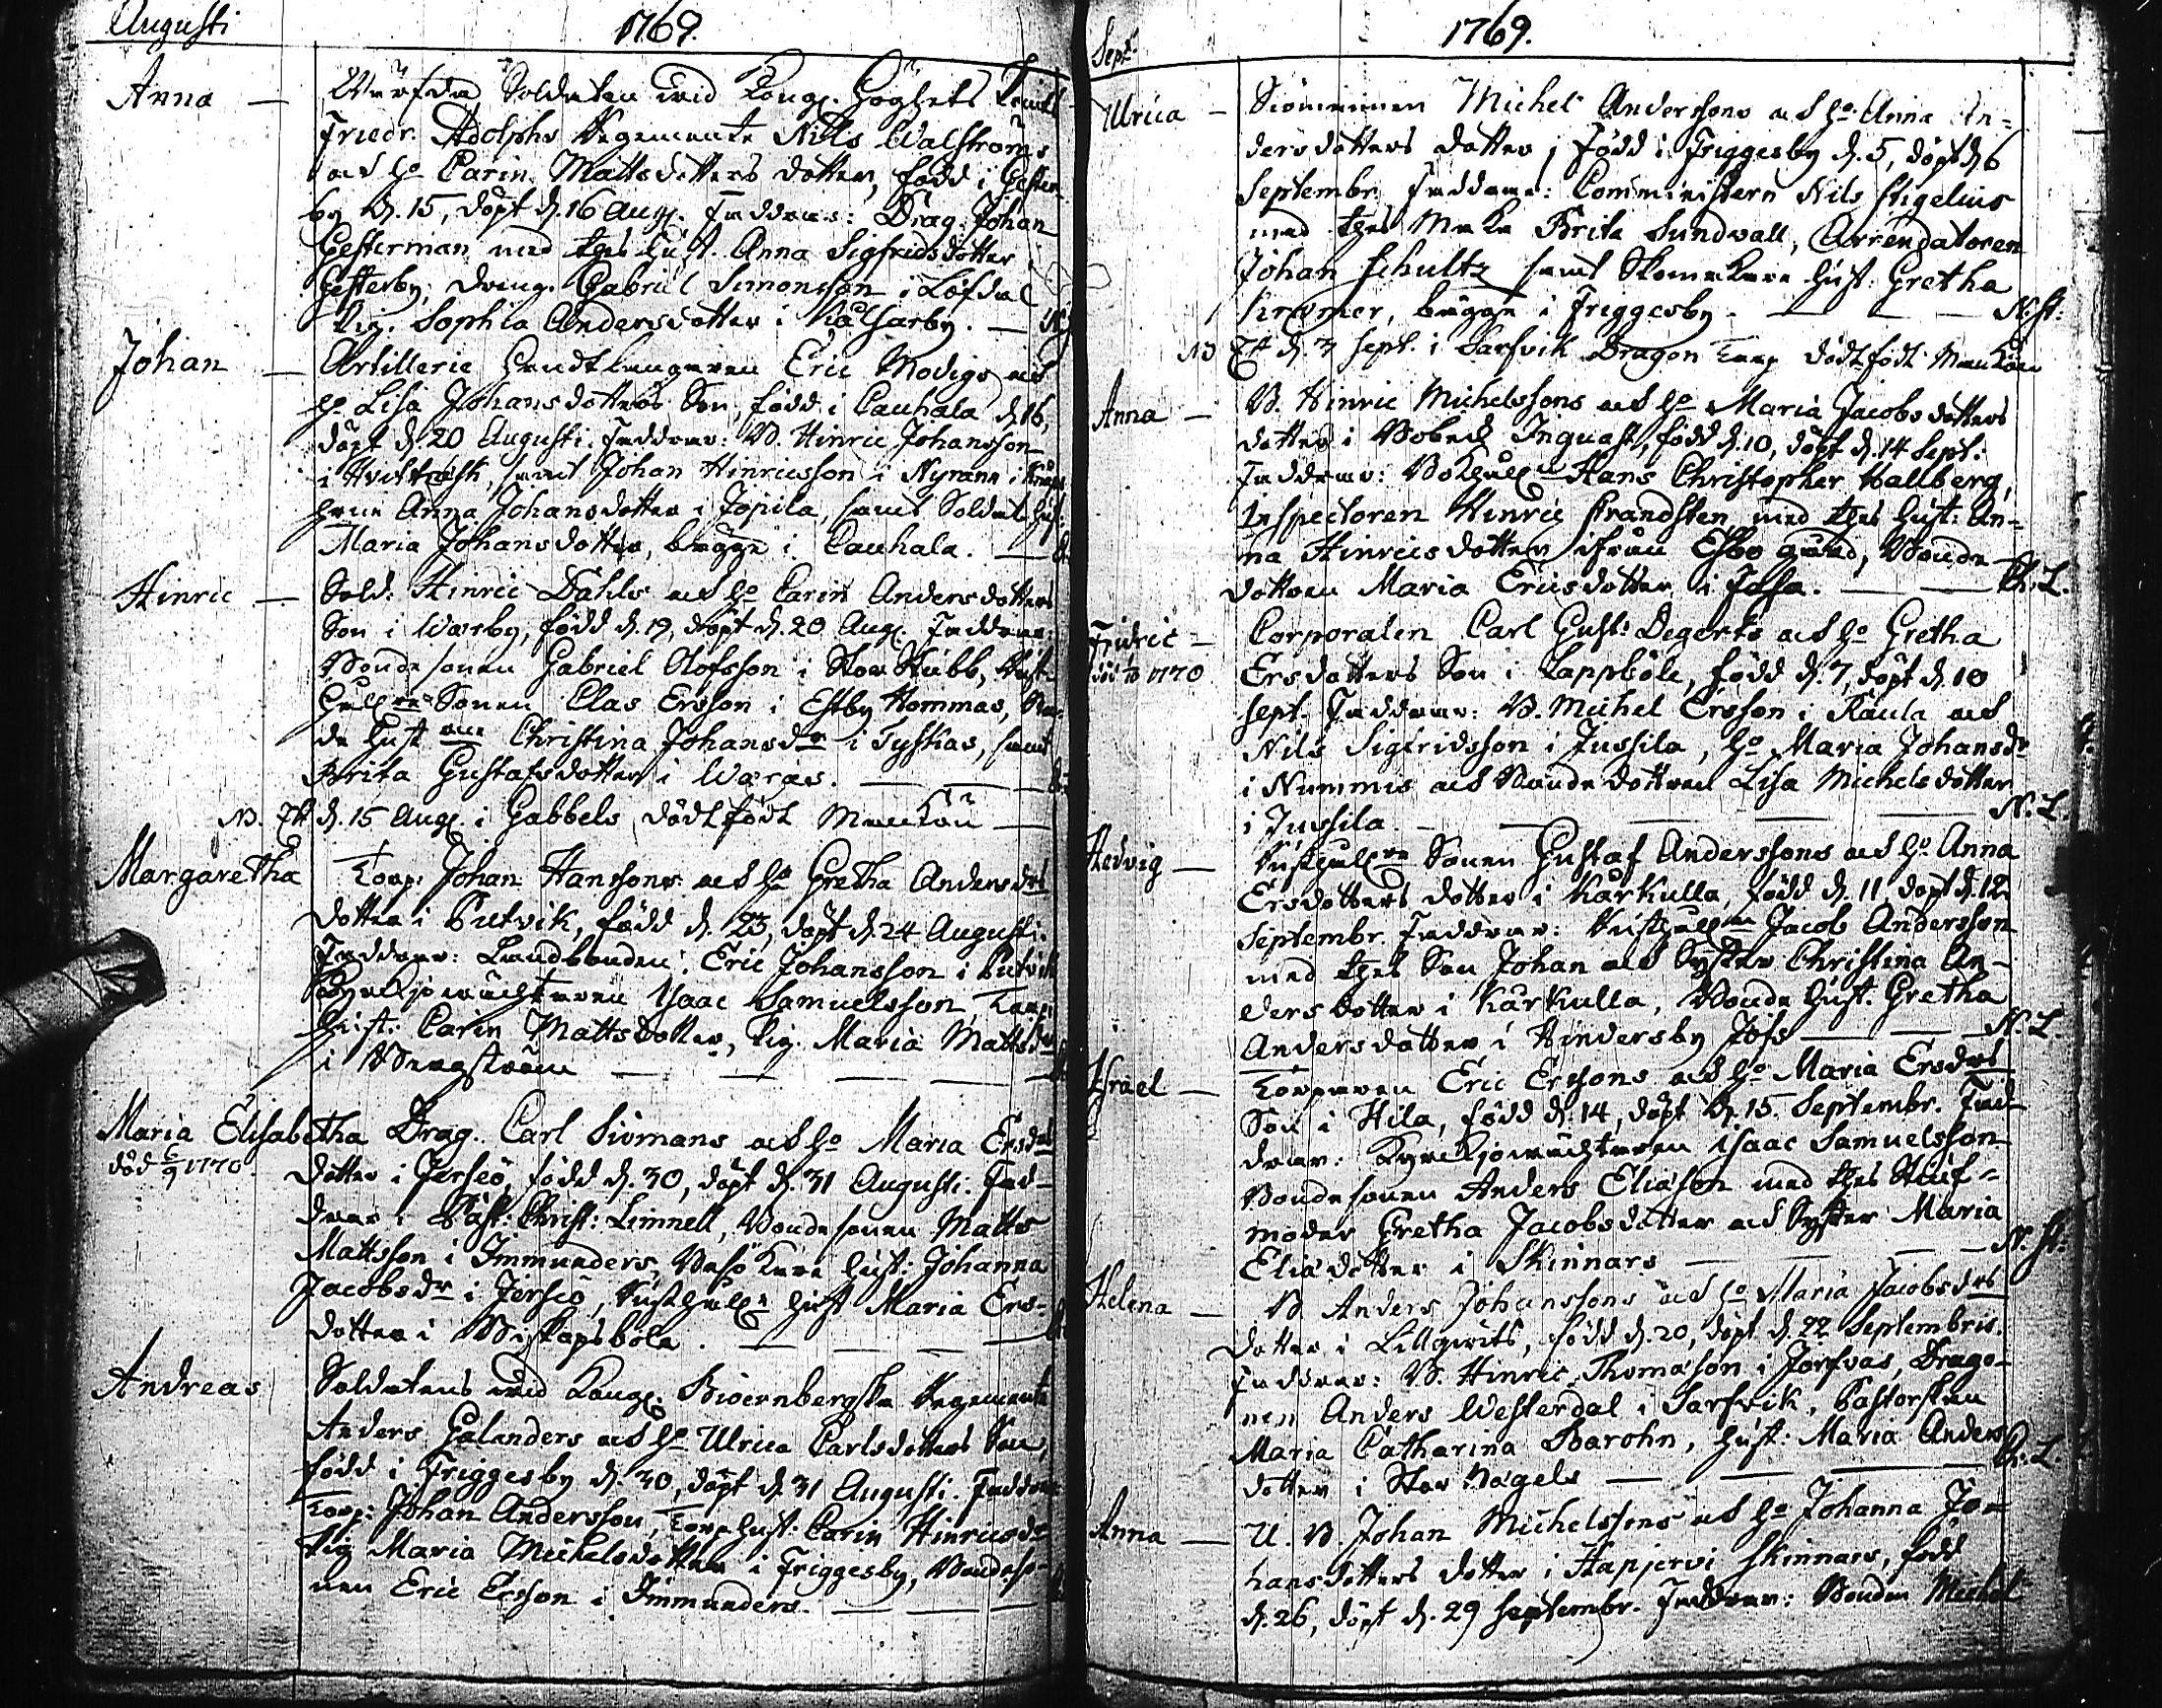 Augusti 1769.
Anna — Värfda Soldaten wid Kongl. Höghets
Friedr. Adolphs Regemente Nills Walströms
och Ho Carin Mattsdotters dotter, född i Gester-
by d. 15, döpt d. 16 Aug. Faddrar: Drag. Johan
Gesterman med thes Hust. Anna Sigfridsdotter i
Gesterby, dräng. Gabriel Simonsson i Löfdal
Pig. Sophia Andersdotter i Kålsarby. —
Johan — Artillerie Handtlangaren Eric Modigs och
Ho Lisa Johansdotters Son, född i Cauhala d. 16,
döpt d. 20 Augusti. Faddrar: B. Hinric Johansson
i Hvitträsk, samt Johan Hinricsson i Nyrann i
Anna Johansdotter i Jopila, samt Soldat Hust:
Maria Johansdotter, begge i Cauhala. —
Hinric — Sold: Hinric Dahls och Ho Carin Andersdotters
Son i Warby, född d. 19, döpt d. 20 Aug. Faddrar:
Bondesonen Gabriel Olofsson i Stor Stubb, Rust-
hålle Sonen Clas Ersson i Estby Hommas, Bon-
de Hust Christina Johansdr i Tyskas, samt
Brita Gustafsdotter i Wargas. —
NB. Ett d. 15 Aug. i Gabbels dödtfödt Mankön —
Margaretha Torp: Johan Hanssons och Ho Gretha Andersdrs
dotter i Butvik, född d. 23, döpt d. 24 Augusti.
Faddrar: Landbonden Eric Johansson i Butvik
Kyrckjowächtaren Isaac Samuelsson, Torp:
Hust: Carin Mattsdotter, Pig. Maria Mattsdr
i Bergström — — — —
Maria Elisabetha Drag. Carl Siömans och Ho Maria Ersdrs
död 6/9 1770. dotter i Jersö, född d. 30, döpt d. 31 Augusti. Fad-
drar: Past: Christ: Limnell, Bondesonen Matts
Mattsson i Immunders, Besökare Hust: Johanna
Jacobsdr i Jerseö, Rusthåll Hust Maria Ers-
dotter i Biskopsböle. — — —
Andreas Soldatens wid Kongl. Biörnbergska Regemente
Anders Galanders och Ho Ulrica Carlsdotters Son,
född i Friggesby d. 30, döpt d. 31 Augusti. Faddrar
Torp: Johan Andersson, Torp Hust: Carin Hinricsdr
Pig Maria Michelsdotter i Friggesby, Bondeso-
nen Eric Ersson i Immunders. — — —
Septr 1769.
Ulrica — Siömannen Michel Anderssons och Ho Anna An-
dersdotters dotter, född i Friggesby d. 5, döpt d. 6
Septembr. Faddrar: Comministern Nils Stigelius
med thes Maka Brita Sundwall, Arrendatoren
Johan Schultz samt Skomakare Hust. Gretha
Kræmer, begge i Friggesby. — — N. St.
NB Ett d. 3 Sept. i Sarfvik Dragon Torp dödtfödt Mankön
Anna — B. Hinric Michelssons och Ho Maria Jacobsdotters
dotter i Bobeck Inguast, född d. 10, döpt d. 14 Sept:
Faddrar: Bokhåll Hans Christopher Hallberg,
Inspectoren Hinric Brandsten med thes Hust: An-
na Hinricsdotter ifrån Esbo gård, Bonde-
dottren Maria Ericsdotter i Jössa. — — L.
Fridric — Corporalen Carl Gust: Degerts och Ho Gretha
död 1770 Ersdotters Son i Lappböle, född d. 7, döpt d. 10
Sept. Faddrar: B. Michel Ersson i Råula och
Nils Sigfridsson i Jussila, Ho Maria Johansdr
i Nummis och Bondedottren Lisa Michelsdotter
i Jussila. — — — N. L.
Hedvig — Rusthålle Sonen Gustaf Anderssons och Ho Anna
Ersdotters dotter i Kårkulla, född d. 11, döpt d. 12
Septembr. Faddrar: Rusthåll Jacob Andersson
med thes Son Johan och Syster Christina An-
dersdotter i Kårkulla, Bonde Hust. Gretha
Andersdotter i Hindersby Jofs — — N. L.
Israel — Torparen Eric Erssons och Ho Maria Ersdrs
Son i Hila, född d. 14, döpt d. 15 Septembr. Fad-
drar: Kyrckjowächtaren Isaac Samuelsson
Bondesonen Anders Eliason med thes Stiuf-
moder Gretha Jacobsdotter och Syster Maria
Eliædotter i Skinnars — — N. St.
Helena — B Anders Johanssons och Ho Maria Jacobsdrs
dotter i Lillqwits, född d. 20, döpt d. 22 Septembris.
Faddrar: B. Hinric Thomason i Jorfvas, Drago-
nen Anders Westerdal i Sarfvik, Pastorskan
Maria Catharina Barohn, Hust: Maria Anders
dotter i Stor Nagels — — — L.
Anna — U. B. Johan Michelssons och Ho Johanna Jo-
hansdotters dotter i Hapjervi Skinnars, född
d. 26, döpt d. 29 Septembr. Faddrar: Bonden Michel